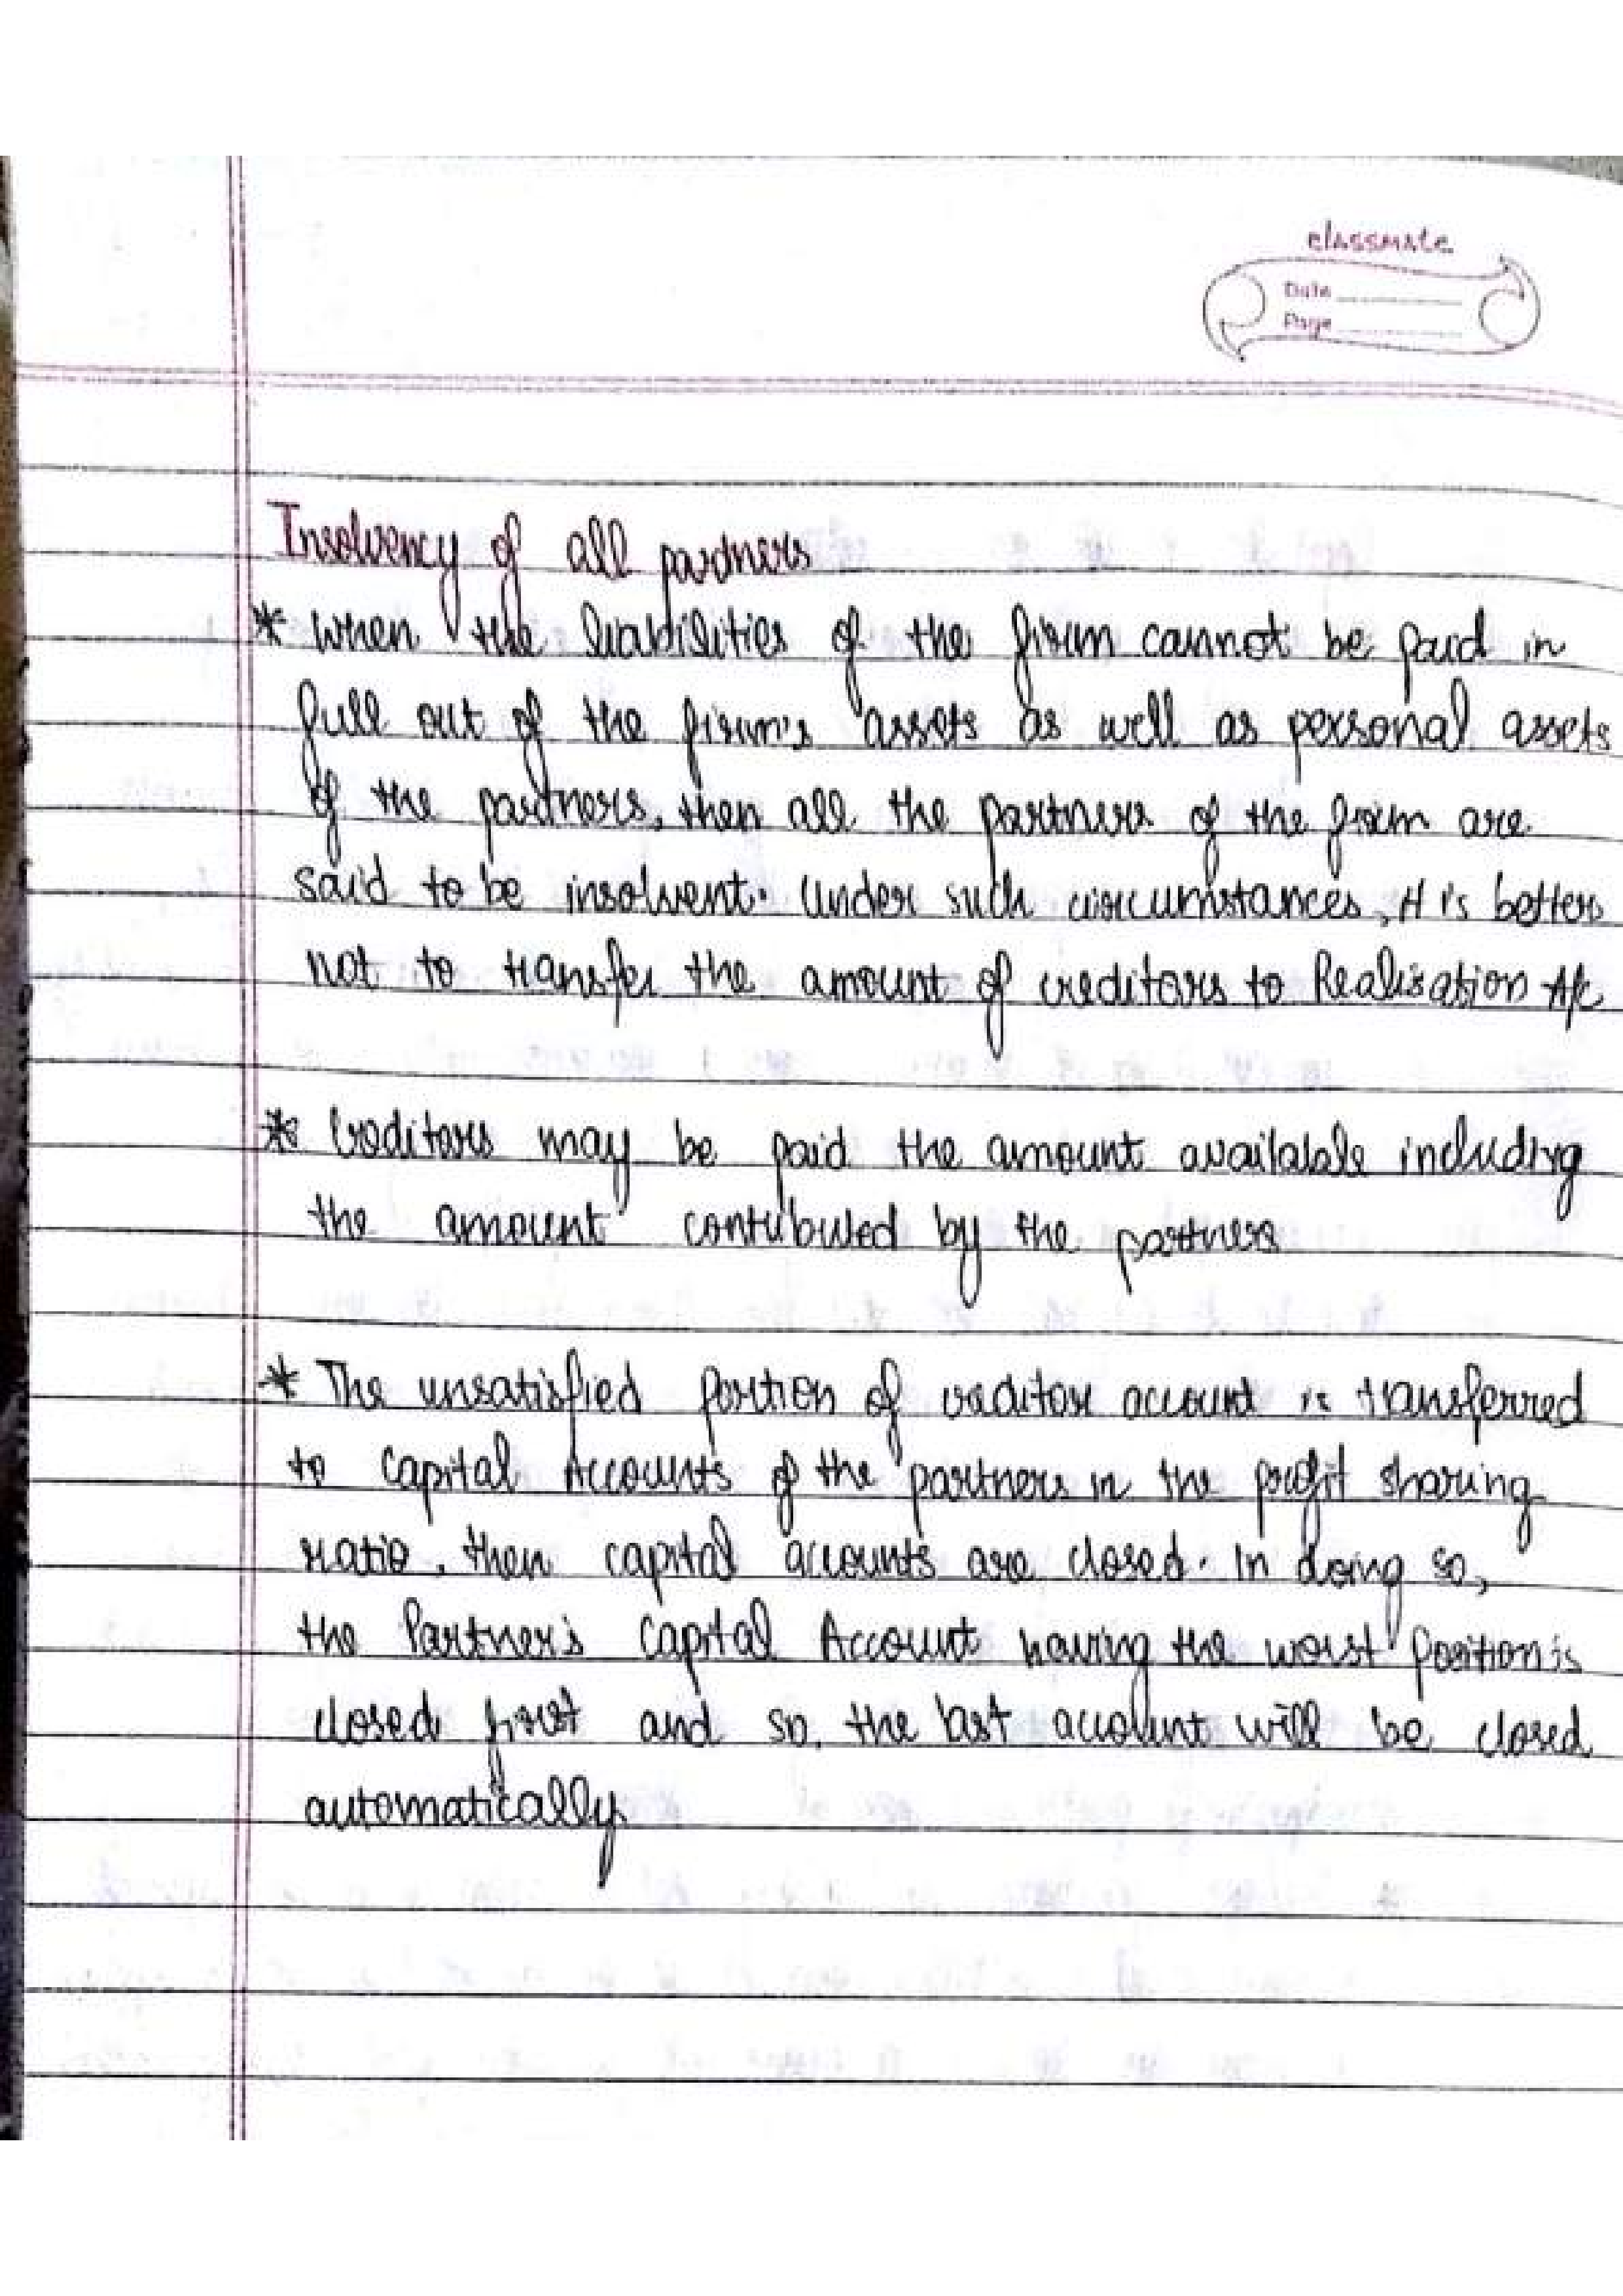 classmate
Date
Page
Insolvency of all partners
* When the liabilities of the firm cannot be paid in
full out of the firm's assets as well as personal assets
of the partners, then all the partners of the firm are
said to be insolvent. Under such circumstances, it is better
not to transfer the amount of creditors to Realisation A/c
* Creditors may be paid the amount available including
the amount contributed by the partners
* The unsatisfied portion of creditor account is transferred
to Capital Accounts of the partners in the profit sharing
ratio, then capital accounts are closed. In doing so,
the Partner's Capital Account having the worst position is
closed first and so, the last account will be closed
automatically.